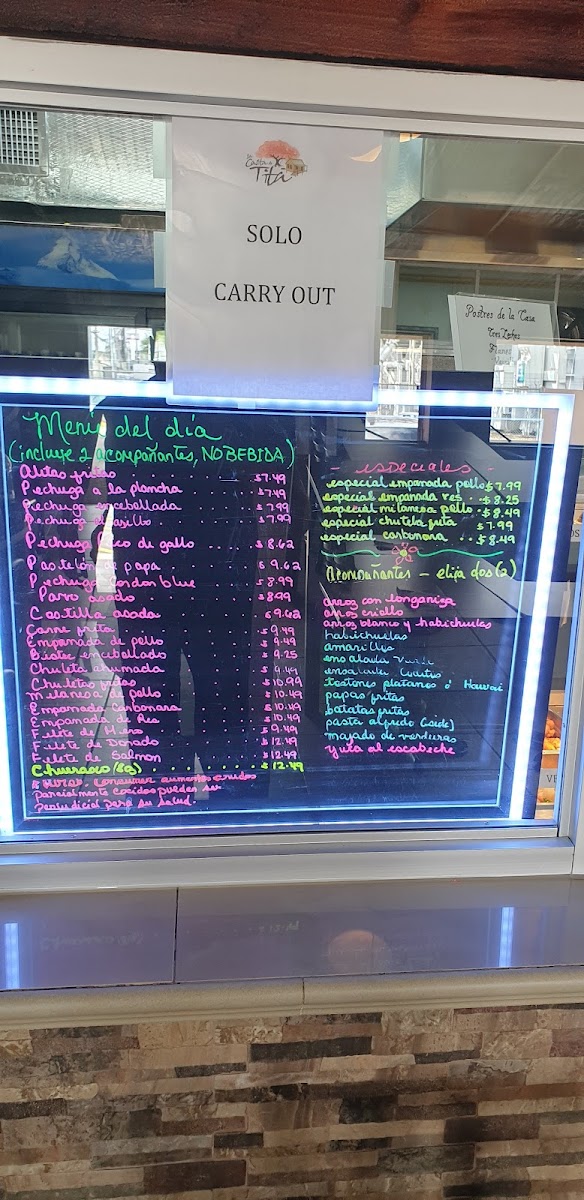 Casa
Tita
SOLO
CARRY OUT
Postres de la Casa
Tres Leches
Flanes
Menú del día
(incluye 2 acompañantes, NO BEBIDA)
Alitas fritas $7.49
Pechuga a la plancha $7.49
Pechuga encebollada $7.99
Pechuga $7.99
Pechuga pico de gallo ... $8.62
Pastelón de papa . . $9.62
Pechuga cordon blue $8.99
Pavo asado $8.99
Costilla asada $9.62
Carne frita $9.49
Empanada de pollo $9.49
Bistec encebollado $9.25
Chuleta ahumada $9.49
Chuletas fritas $10.99
Milanesa de pollo $10.49
Empanada Carbonara $10.49
Empanada de Res $10.49
Filete de Mero $9.49
Filete de Dorado $12.49
Filete de Salmon $12.49
Churrasco (8oz) $12.49
consumir alimentos crudos
parcialmente cocidos pueden ser
perjudicial para su salud.
- especiales -
especial empanada pollo $7.99
especial empanada res . . $8.25
especial milanesa pollo . $8.49
especial chuleta frita $7.99
especial carbonara . . $8.49
Acompañantes - elija dos (2)
arroz con longaniza
arroz criollo
arroz blanco y habichuelas
habichuelas
amarillos
ensalada verde
ensalada
tostones platanos ó Hawai
papas fritas
batatas fritas
pasta alfredo (side)
majado de verduras
yuca al escabeche